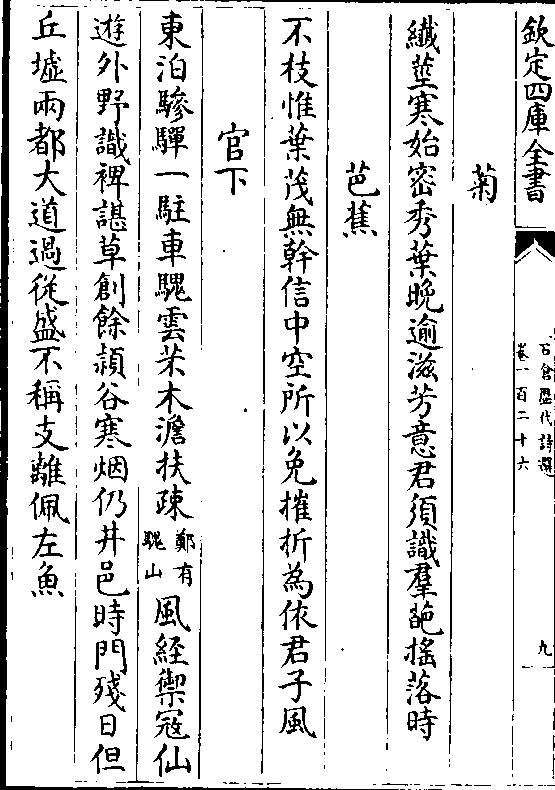 欽定四庫全書
石倉歷代詩選
卷一百二十六
九
菊
纎莖寒始密秀葉晚逾滋芳意君須識羣葩摇落時
芭蕉
不枝惟葉茂無幹信中空所以免摧折為依君子風
官下
東泊驂驒一駐車騩雲苯木澹扶疎鄭有騩山風經禦冦仙
遊外野識裨諶草創餘潁谷寒烟仍井邑時門殘日但
丘墟兩都大道過從盛不稱支離佩左魚